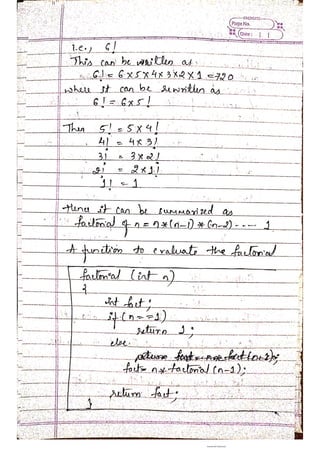 Page No.
Date: | |
i.e., 6!
This can be written as
6! = 6×5×4×3×2×1 = 720
where it can be rewritten as
6! = 6×5!
Then 5! = 5×4!
4! = 4×3!
3! = 3×2!
2! = 2×1!
1! = 1
Hence it can be summarized as
factorial of n = n*(n-1)*(n-2) ---- 1
A function to evaluate the factorial
factorial (int n)
{
int fact;
if (n==1)
return 1;
else
fact= n* factorial (n-1);
return fact;
}